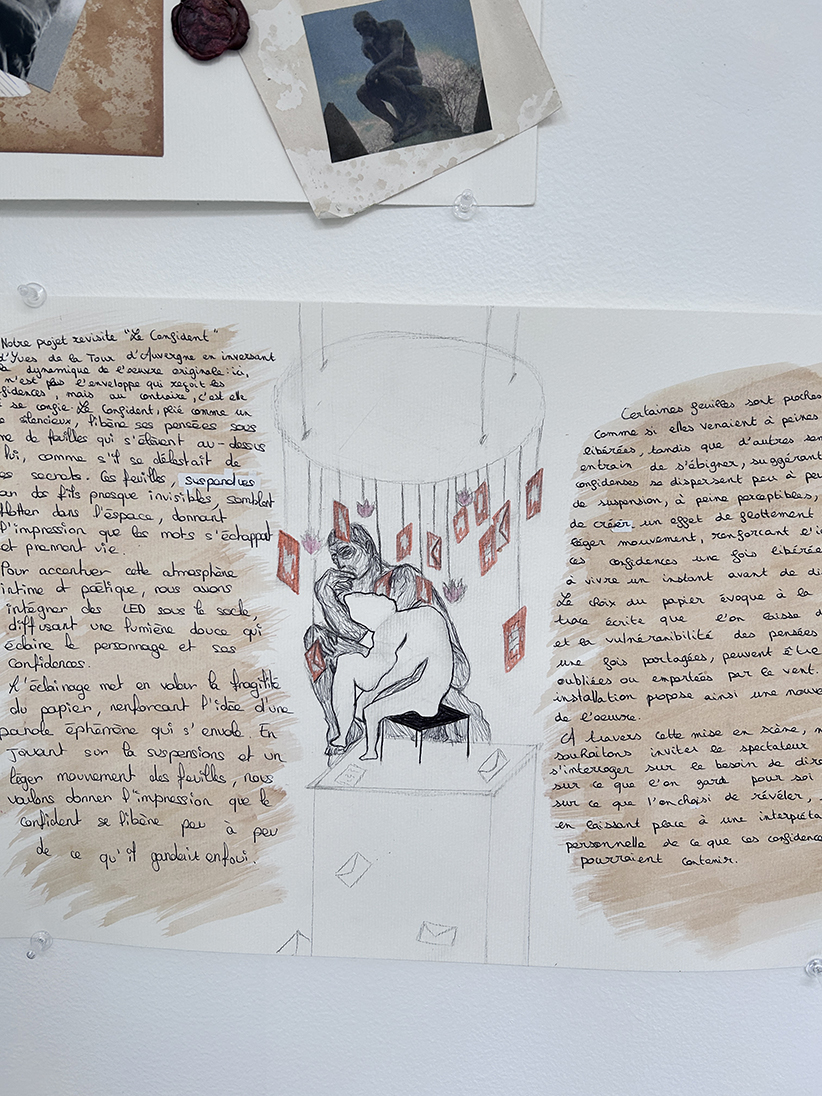 Notre projet revisite "Le Confident"
d'Yves de la Tour d'Auvergne en inversant
dynamique de l'oeuvre originale : ici,
n'est plus l'enveloppe qui reçoit les
fidences, mais au contraire, c'est elle
se confie. Le Confident, plié comme un
silencieux, libère ses pensées sous
de feuilles qui s'élèvent au-dessus
lui, comme s'il se délestait de
secrets. Ces feuilles, suspendues
des fils presque invisibles, semblent
flotter dans l'espace, donnant
l'impression que les mots s'échappent
et prennent vie.
Pour accentuer cette atmosphère
intime et poétique, nous avons
intégrer des LED sous le socle,
diffusant une lumière douce qui
éclaire le personnage et ses
confidences.
L'éclairage met en valeur la fragilité
du papier, renforçant l'idée d'une
parole éphémère qui s'envole. En
jouant sur la suspensions et un
léger mouvement des feuilles, nous
voulons donner l'impression que le
confident se libère peu à peu
de ce qu'il gardait enfoui.
Certaines feuilles sont proches
comme si elles venaient à peines
libérées, tandis que d'autres
entrain de s'éloigner, suggérant
confidences se dispersent peu à
de suspension, à peine perceptibles,
de créer un effet de flottement
léger mouvement, renforcant
ces confidences une fois libérée
à vivre un instant avant de
Le choix du papier évoque à la
trace écrite que l'on laisse
et la vulnéranibilité des pensées
une fois partagées, peuvent être
oubliées ou emportées par le vent.
installation propose ainsi une
de l'oeuvre.
A travers cette mise en scène,
souhaitons inviter le spectateur
s'interroger sur le besoin de
sur ce que l'on gard pour soi
sur ce que l'on choisi de révéler,
en laissant place à une
personnelle de ce que ces
pourraient contenir.